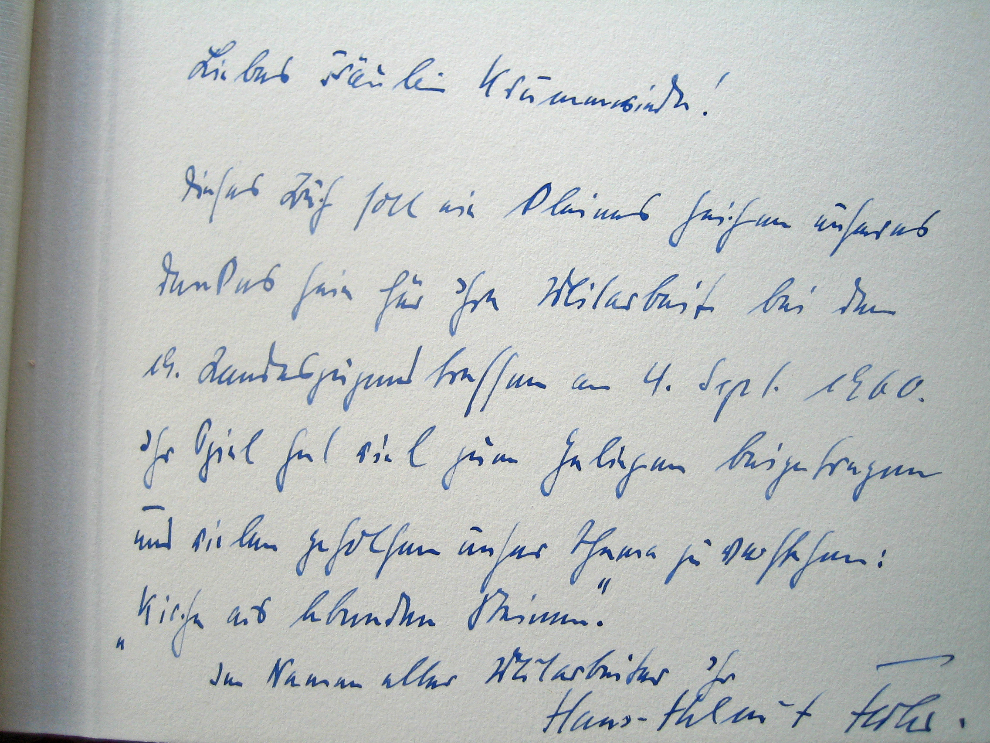 Liebes Fräulein Krummwiede!
Dieses Buch soll ein kleines Zeichen unseres
Dankes sein für Ihre Mitarbeit bei dem
19. Landesjugendtreffen am 4. Sept. 1960.
Ihr Spiel hat viel zum Gelingen beigetragen
und vielen geholfen unser Thema zu verstehen:
„Kirche aus lebenden Steinen."
Im Namen aller Mitarbeiter Ihr
Hans-Helmut